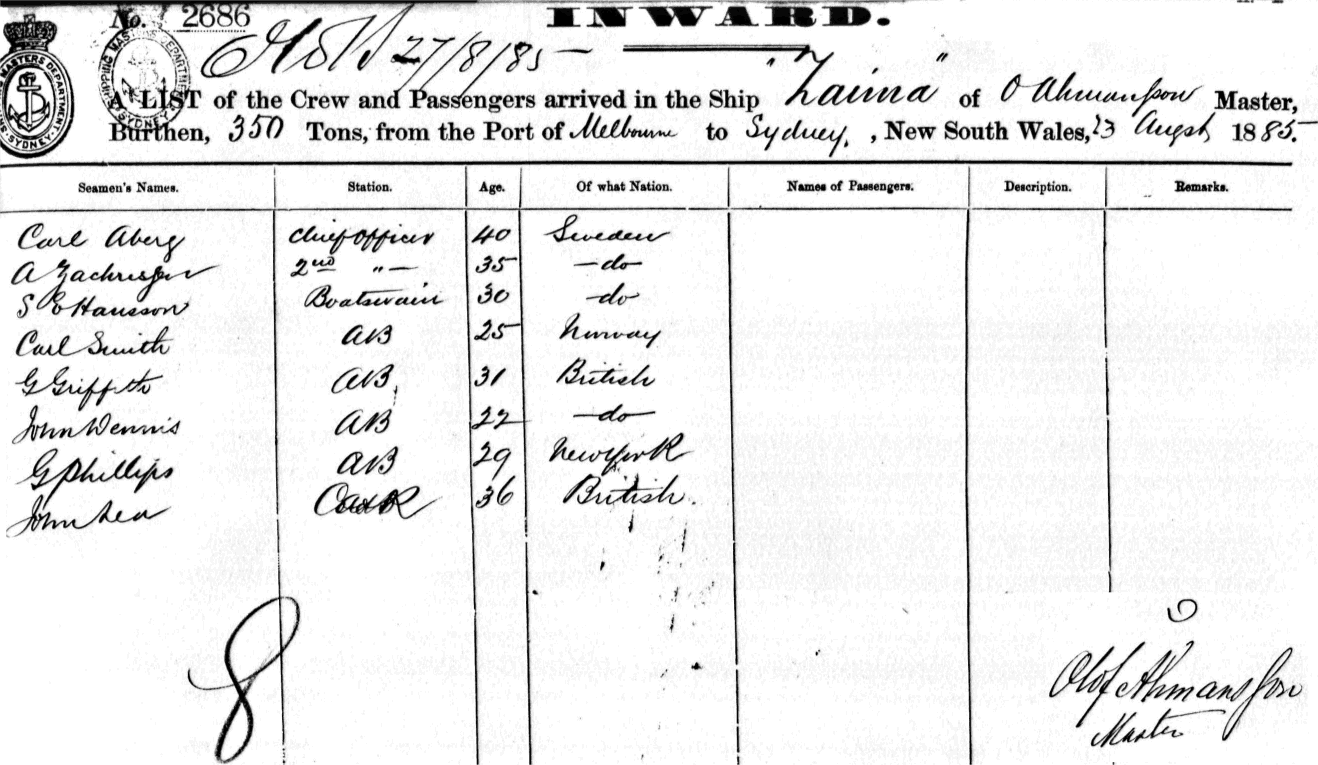 No. 2686
INWARD.
27/8/85
A LIST of the Crew and Passengers arrived in the Ship "Zaima" of O Ahmansson Master,
Burthen, 350 Tons, from the Port of Melbourne to Sydney, New South Wales, 23 Augst 1885
Seamen's Names. Station. Age. Of what Nation. Names of Passengers. Description. Remarks.
Carl Aberg Chief Officer 40 Sweden
A Zachrisson 2nd "— 35 —do—
S E Hansson Boatswain 30 do—
Carl Smith AB 25 Norway
G Griffeth AB 31 British
John Dennis AB 22 —do—
G Phillips AB 29 New York
John Lea 36 British
8
Olof Ahmansson
Master